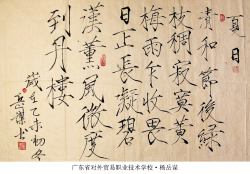 夏日
清和節後綠
枝稠寂寞黃
梅雨乍收畏
日正長凝碧
漢薰風微度
到丹樓
歲在乙未初冬
岳謀書
广东省对外贸易职业技术学校·杨岳谋